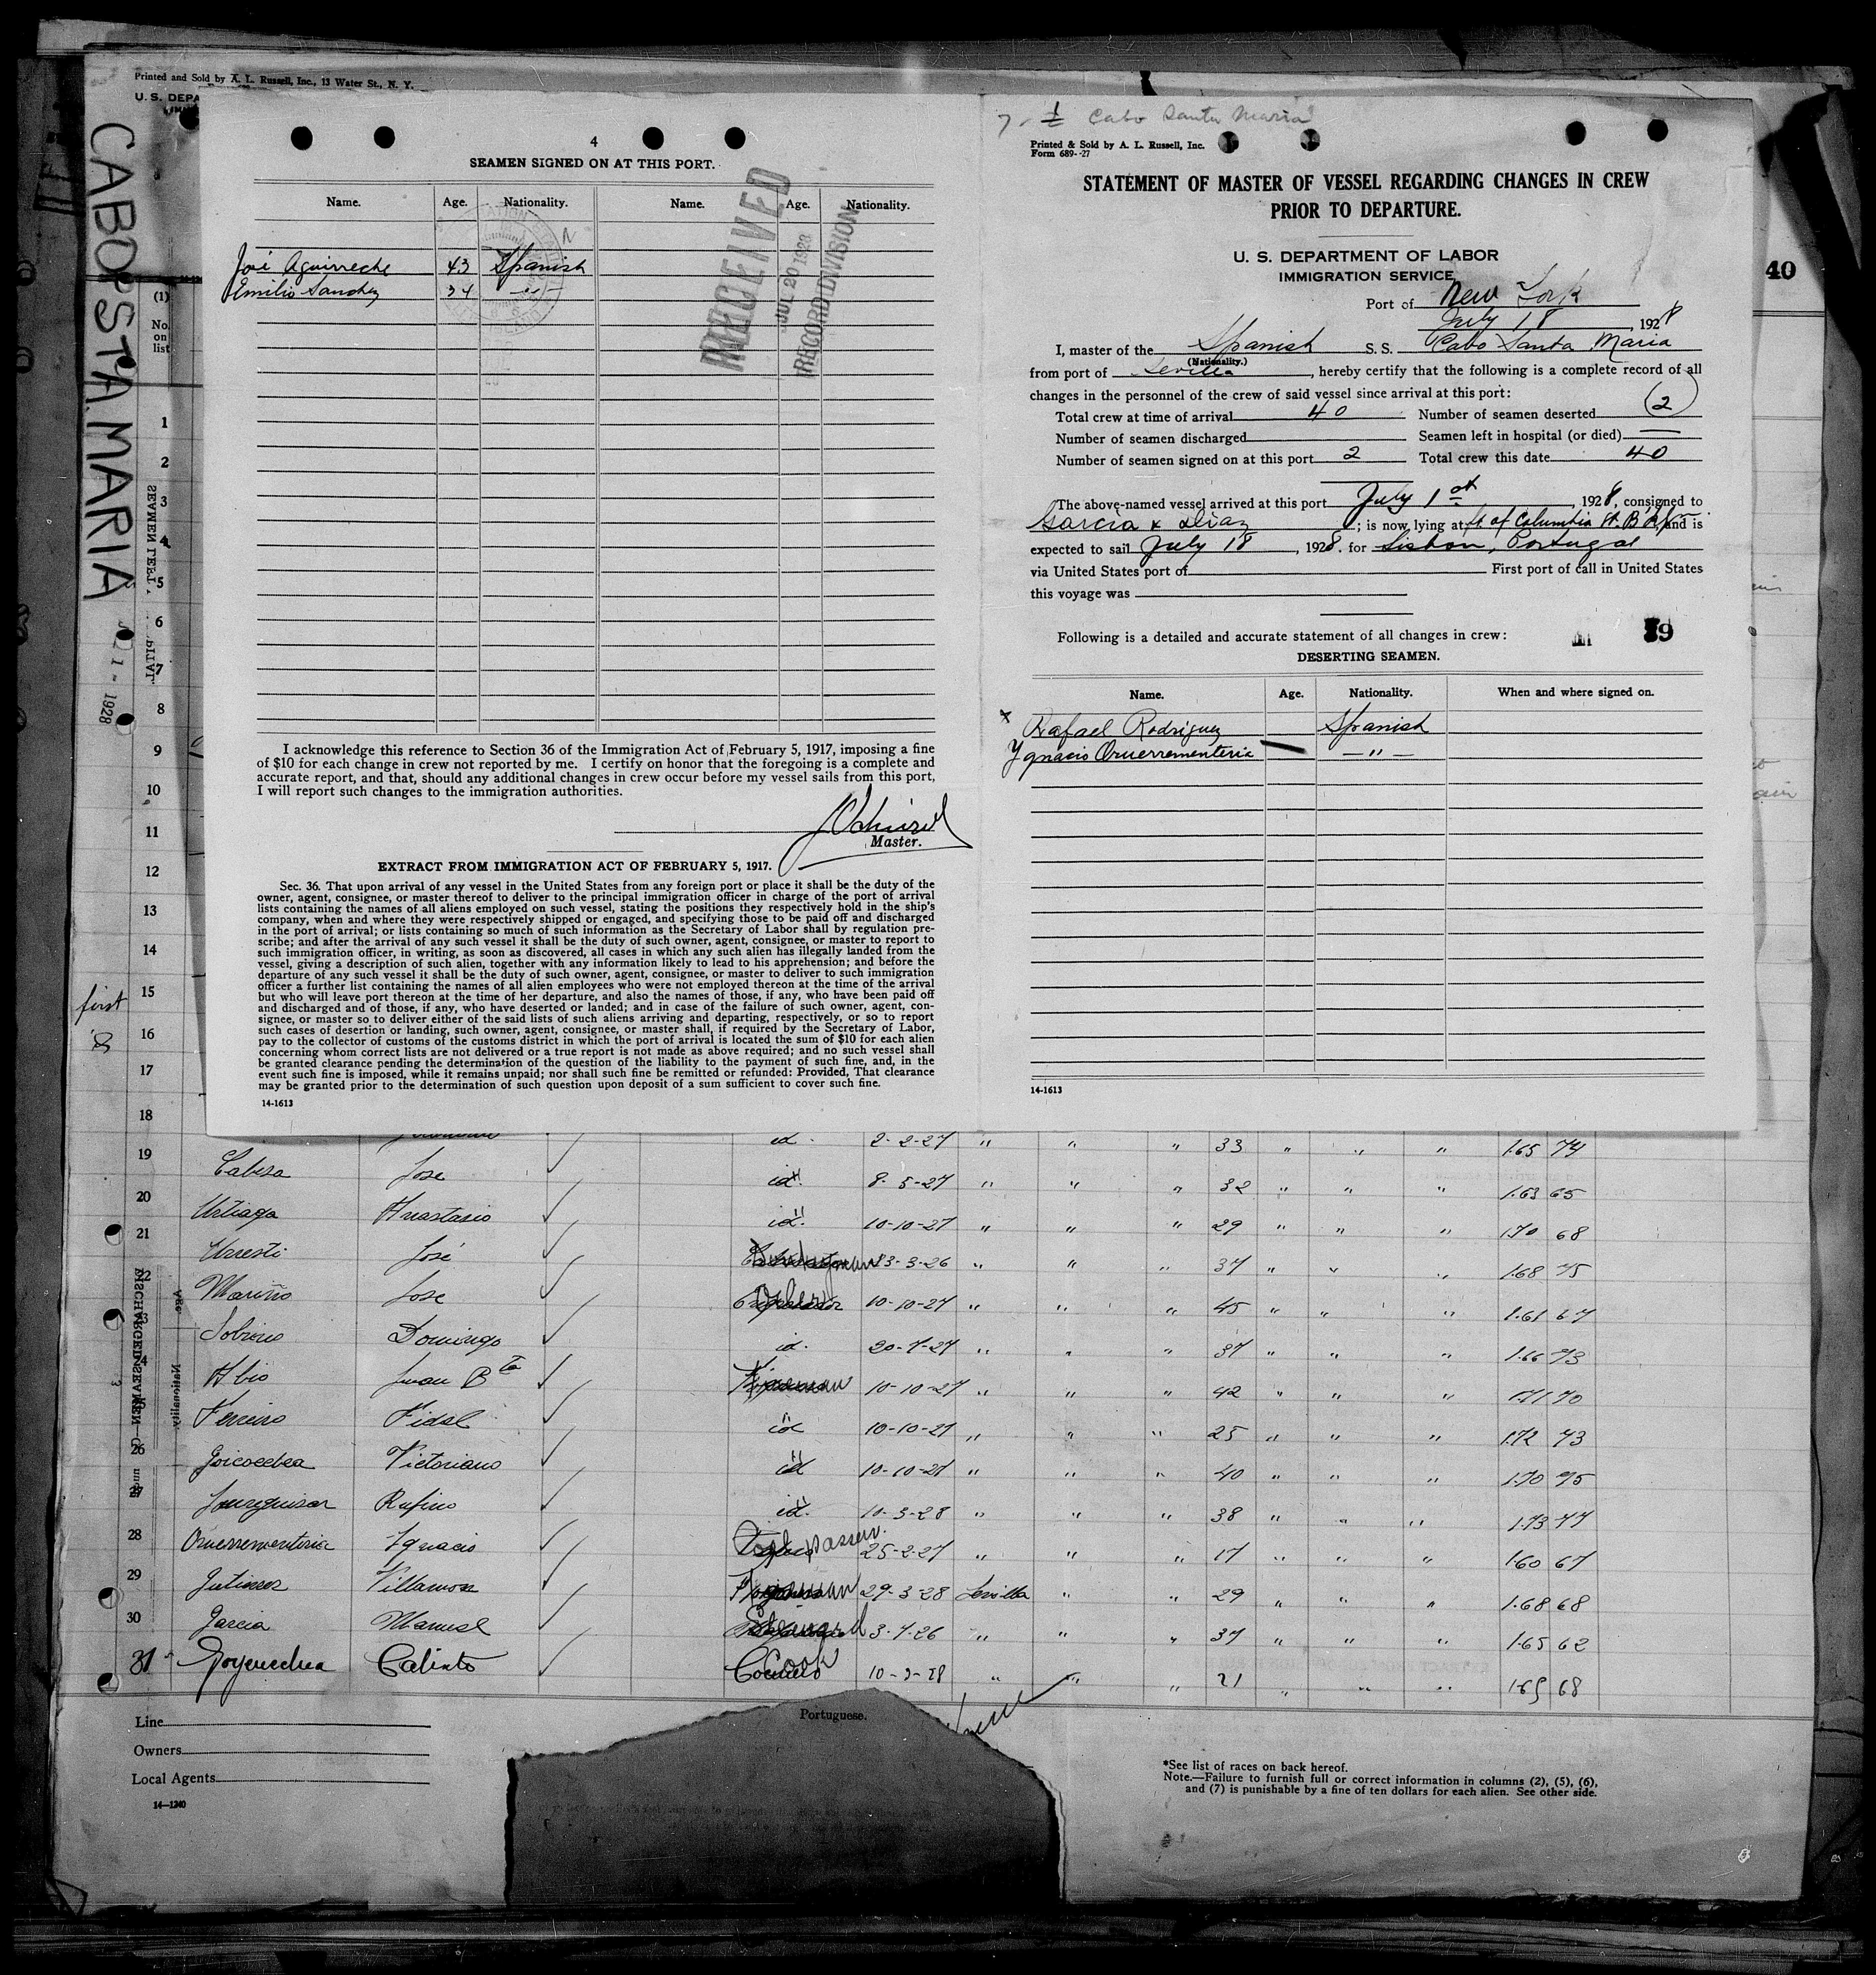 Printed and Sold by A. L. Russell, Inc., 13 Water St., N. Y.
U. S. DEPA
CABO STA. MARIA
1 - 1928
40
(1)
No. on list
4
SEAMEN SIGNED ON AT THIS PORT.
Name. Age. Nationality. Name. Age. Nationality.
José Aguirreche 43 Spanish
Emilio Sanchez 34 -"-
RECEIVED
JUL 20 1928
RECORD DIVISION
I acknowledge this reference to Section 36 of the Immigration Act of February 5, 1917, imposing a fine
of $10 for each change in crew not reported by me. I certify on honor that the foregoing is a complete and
accurate report, and that, should any additional changes in crew occur before my vessel sails from this port,
I will report such changes to the immigration authorities.
Master.
EXTRACT FROM IMMIGRATION ACT OF FEBRUARY 5, 1917.
Sec. 36. That upon arrival of any vessel in the United States from any foreign port or place it shall be the duty of the
owner, agent, consignee, or master thereof to deliver to the principal immigration officer in charge of the port of arrival
lists containing the names of all aliens employed on such vessel, stating the positions they respectively hold in the ship's
company, when and where they were respectively shipped or engaged, and specifying those to be paid off and discharged
in the port of arrival; or lists containing so much of such information as the Secretary of Labor shall by regulation pre-
scribe; and after the arrival of any such vessel it shall be the duty of such owner, agent, consignee, or master to report to
such immigration officer, in writing, as soon as discovered, all cases in which any such alien has illegally landed from the
vessel, giving a description of such alien, together with any information likely to lead to his apprehension; and before the
departure of any such vessel it shall be the duty of such owner, agent, consignee, or master to deliver to such immigration
officer a further list containing the names of all alien employees who were not employed thereon at the time of the arrival
but who will leave port thereon at the time of her departure, and also the names of those, if any, who have been paid off
and discharged and of those, if any, who have deserted or landed; and in case of the failure of such owner, agent, con-
signee, or master so to deliver either of the said lists of such aliens arriving and departing, respectively, or so to report
such cases of desertion or landing, such owner, agent, consignee, or master shall, if required by the Secretary of Labor,
pay to the collector of customs of the customs district in which the port of arrival is located the sum of $10 for each alien
concerning whom correct lists are not delivered or a true report is not made as above required; and no such vessel shall
be granted clearance pending the determination of the question of the liability to the payment of such fine, and, in the
event such fine is imposed, while it remains unpaid; nor shall such fine be remitted or refunded: Provided, That clearance
may be granted prior to the determination of such question upon deposit of a sum sufficient to cover such fine.
14-1613
7 - 1 Cabo Santa Maria
Printed & Sold by A. L. Russell, Inc.
Form 689--27
STATEMENT OF MASTER OF VESSEL REGARDING CHANGES IN CREW
PRIOR TO DEPARTURE.
U. S. DEPARTMENT OF LABOR
IMMIGRATION SERVICE
Port of New York
July 18, 1928
I, master of the Spanish S. S. Cabo Santa Maria
(Nationality.)
from port of Sevilla, hereby certify that the following is a complete record of all
changes in the personnel of the crew of said vessel since arrival at this port:
Total crew at time of arrival 40 Number of seamen deserted (2)
Number of seamen discharged Seamen left in hospital (or died) —
Number of seamen signed on at this port 2 Total crew this date 40
The above-named vessel arrived at this port July 1st, 1928, consigned to
Garcia & Diaz; is now lying at ft of Columbia St. B'klyn and is
expected to sail July 18, 1928. for Lisbon, Portugal
via United States port of First port of call in United States
this voyage was
Following is a detailed and accurate statement of all changes in crew: 39
DESERTING SEAMEN.
Name. Age. Nationality. When and where signed on.
x Rafael Rodriguez Spanish
Ygnacio Oruerrementeria — " —
14-1613
1
2
3
4
5
6
7
8
9
10
11
12
13
14
first 15
16
17
18
id. 2-2-27 " " " 33 " " " 1.65 74
19 Cabesa Jose id. 8-5-27 " " " 32 " " " 1.63 65
20 Urtiaga Anastasio id. 10-10-27 " " " 29 " " " 1.70 68
21 Urresti José 13-3-26 " " " 37 " " " 1.68 75
22 Mariño Jose Oiler 10-10-27 " " " 45 " " " 1.61 67
Sobrino Domingo id. 20-7-27 " " " 37 " " " 1.66 73
Abio Juan Bta Fireman 10-10-27 " " " 42 " " " 1.71 70
Ferreiro Fidel id 10-10-27 " " " 25 " " " 1.72 73
26 Goicoechea Victoriano id 10-10-27 " " " 40 " " " 1.70 75
27 Jaureguizar Rufino id. 10-3-28 " " " 38 " " " 1.73 77
28 Oruerrementeria Ignacio Coal passer. 25-2-27 " " " 17 " " " 1.60 67
29 Gutierrez Villamor Fireman 29-3-28 Sevilla " " 29 " " " 1.68 68
30 Garcia Manuel Steward 3-7-26 " " 37 " " " 1.65 62
31 Goyenechea Calixto Cook 10-3-28 " " " 21 " " " 1.65 68
Line
Owners
Local Agents
14—1240
Portuguese.
*See list of races on back hereof.
Note.—Failure to furnish full or correct information in columns (2), (5), (6),
and (7) is punishable by a fine of ten dollars for each alien. See other side.